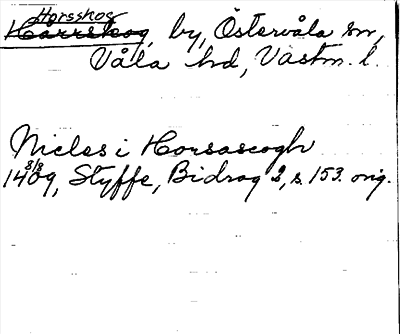 Horsskog
Harrskog, by, Östervåla sn,
Våla hd, Västm. l.
Niclas i Horsascogh
8/8
1409, Styffe, Bidrag 2, s. 153. orig.